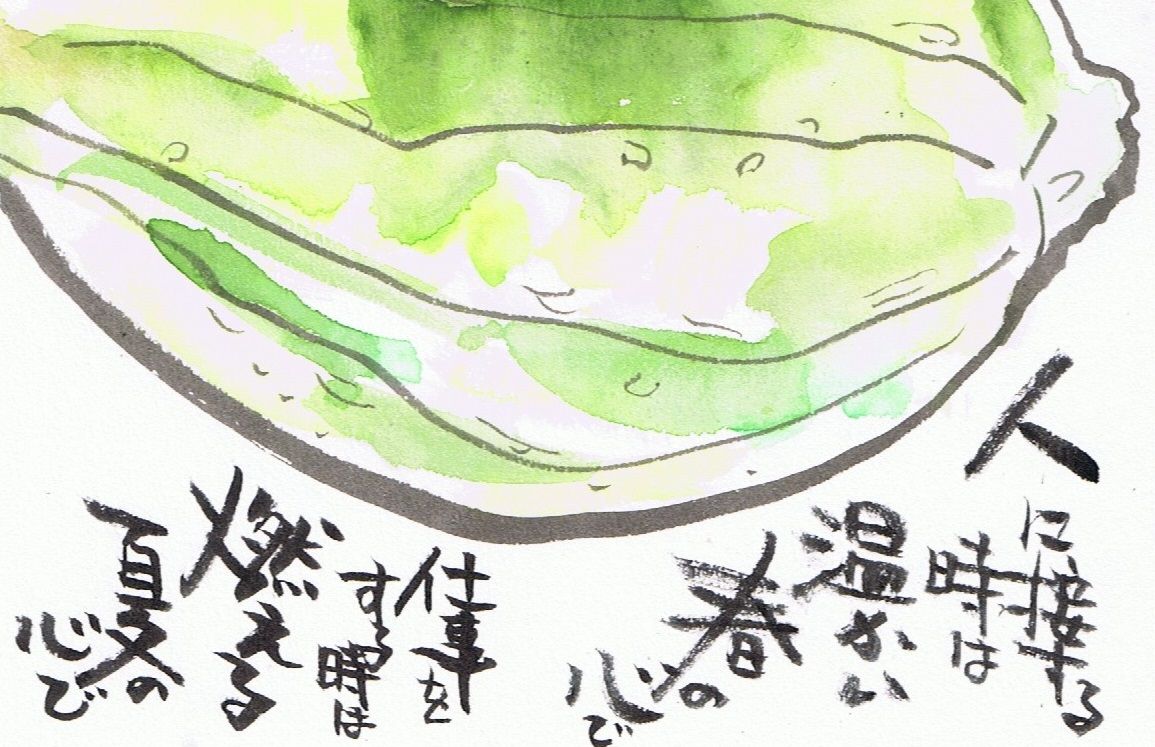 人に接する
時は
温かい
春の
心で
仕事を
する時は
燃える
夏の
心で